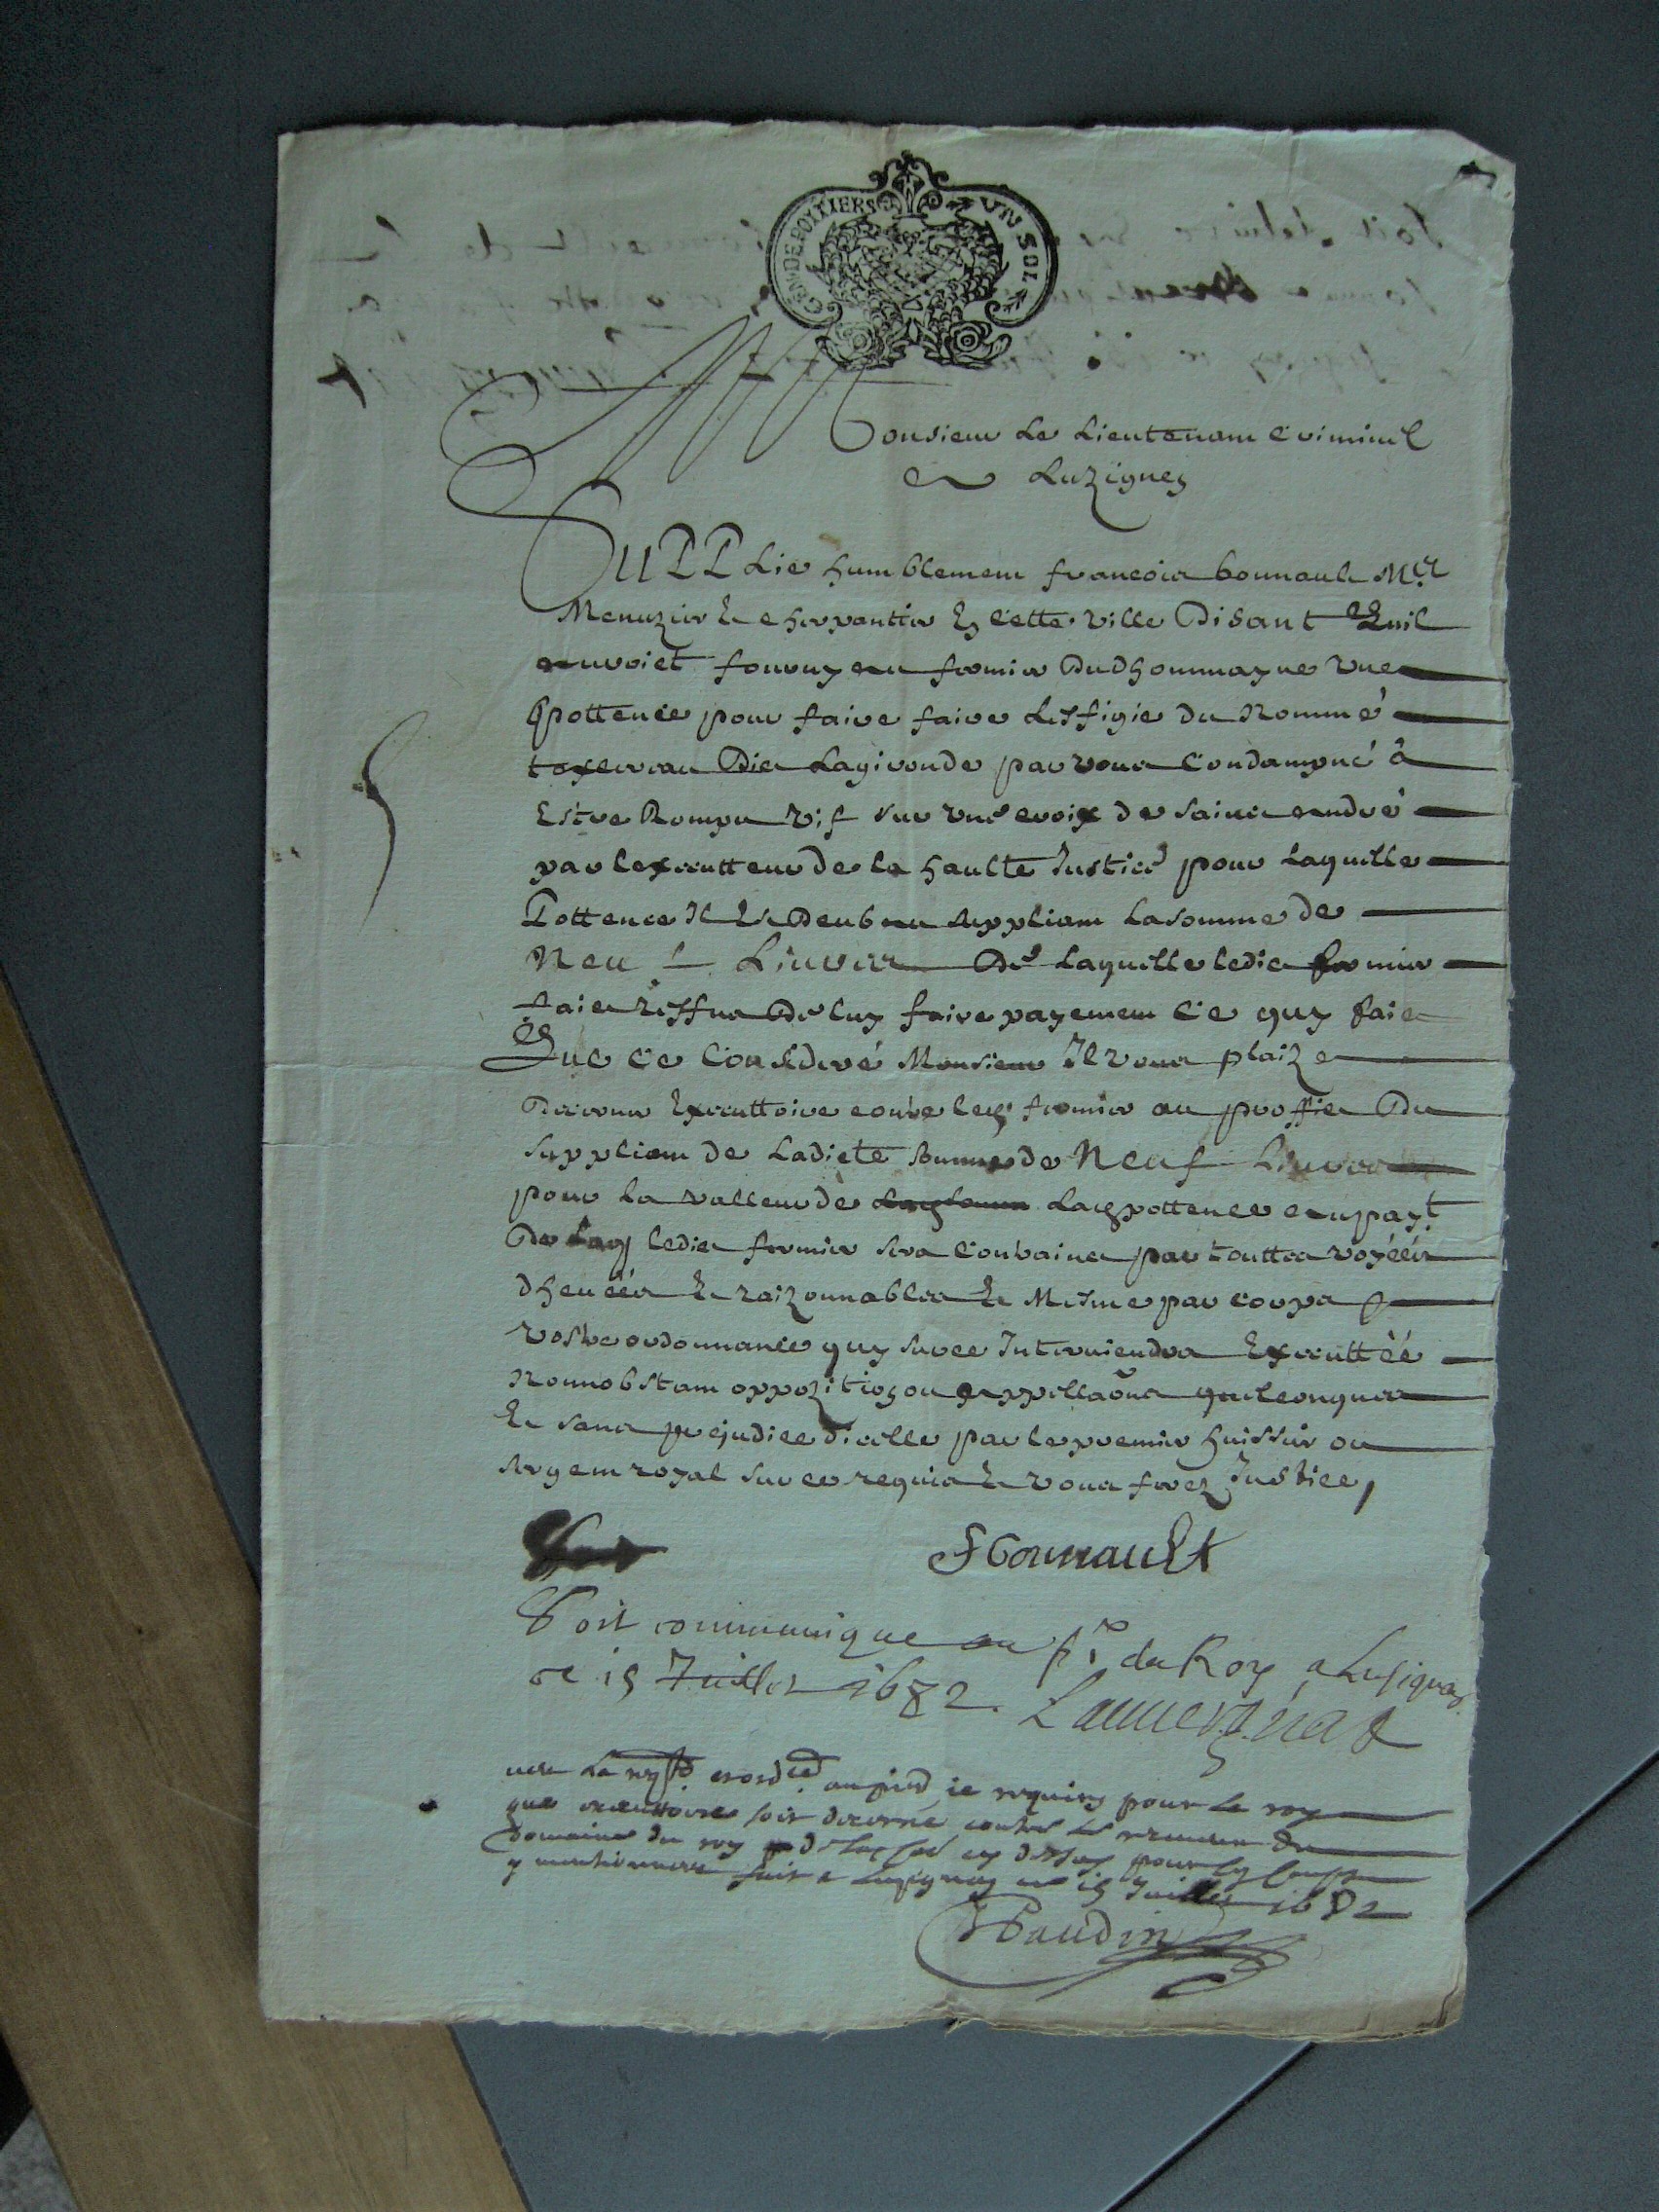 GEN. DE POITIERS UN SOL
Monsieur Le Lieutenant Criminel
a Luzignen
SUPPLie humblement francois bonnault Mtre
Menuzier Et charpantier En cette ville Disant Quil
auroiet fourny au fermier Dudhommayne une
pottence pour faire faire Leffigie du Nommé
dict Lagironde par vous Condampné a
Estre Rompu vif sur une croix de sainct andré
par lexecutteur de la haulte Justice pour Laquelle
Pottence Il Est Deub au suppliant La somme de
Neuf Livres De Laquelle ledict fermier
faict reffus De luy faire payement Ce quy faict
Que Ce Considéré Monsieur Il vous plaize
Decerner Executtoire contre led fermier au proffict Du
suppliant de Ladicte somme de Neuf Livres
pour la valleur de Lad pottence au payt
De Laq ledict fermier sera Contrainct par touttes voyées
dheuées Et raizonnables Et Mesme par corps
vostre ordonnance quy sur ce Interviendra Executtéé
Nonnobstant oppozition ou appellaõns quelconques
Et sans prejudice dicelle par le premier huissier ou
sergent royal sur ce requis Et vous ferez Justice,
f Bonnault
Soit communique au pr du Roy a Lusignan
ce 15 Juillet 1682. Lauvergnat
veu La reqte aupied je requiers pour le roy
que executtoire soit decerné contre le fermier du
Domaine du roy pour
y mentionnée fait a Luzignan ce 15 Juillet 1682
Baudin